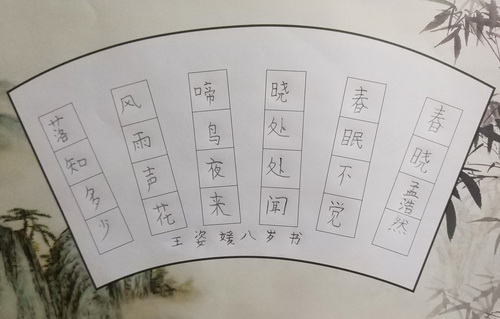 春晓孟浩然
春眠不觉
晓处处闻
啼鸟夜来
风雨声花
落知多少
王姿媛八岁书